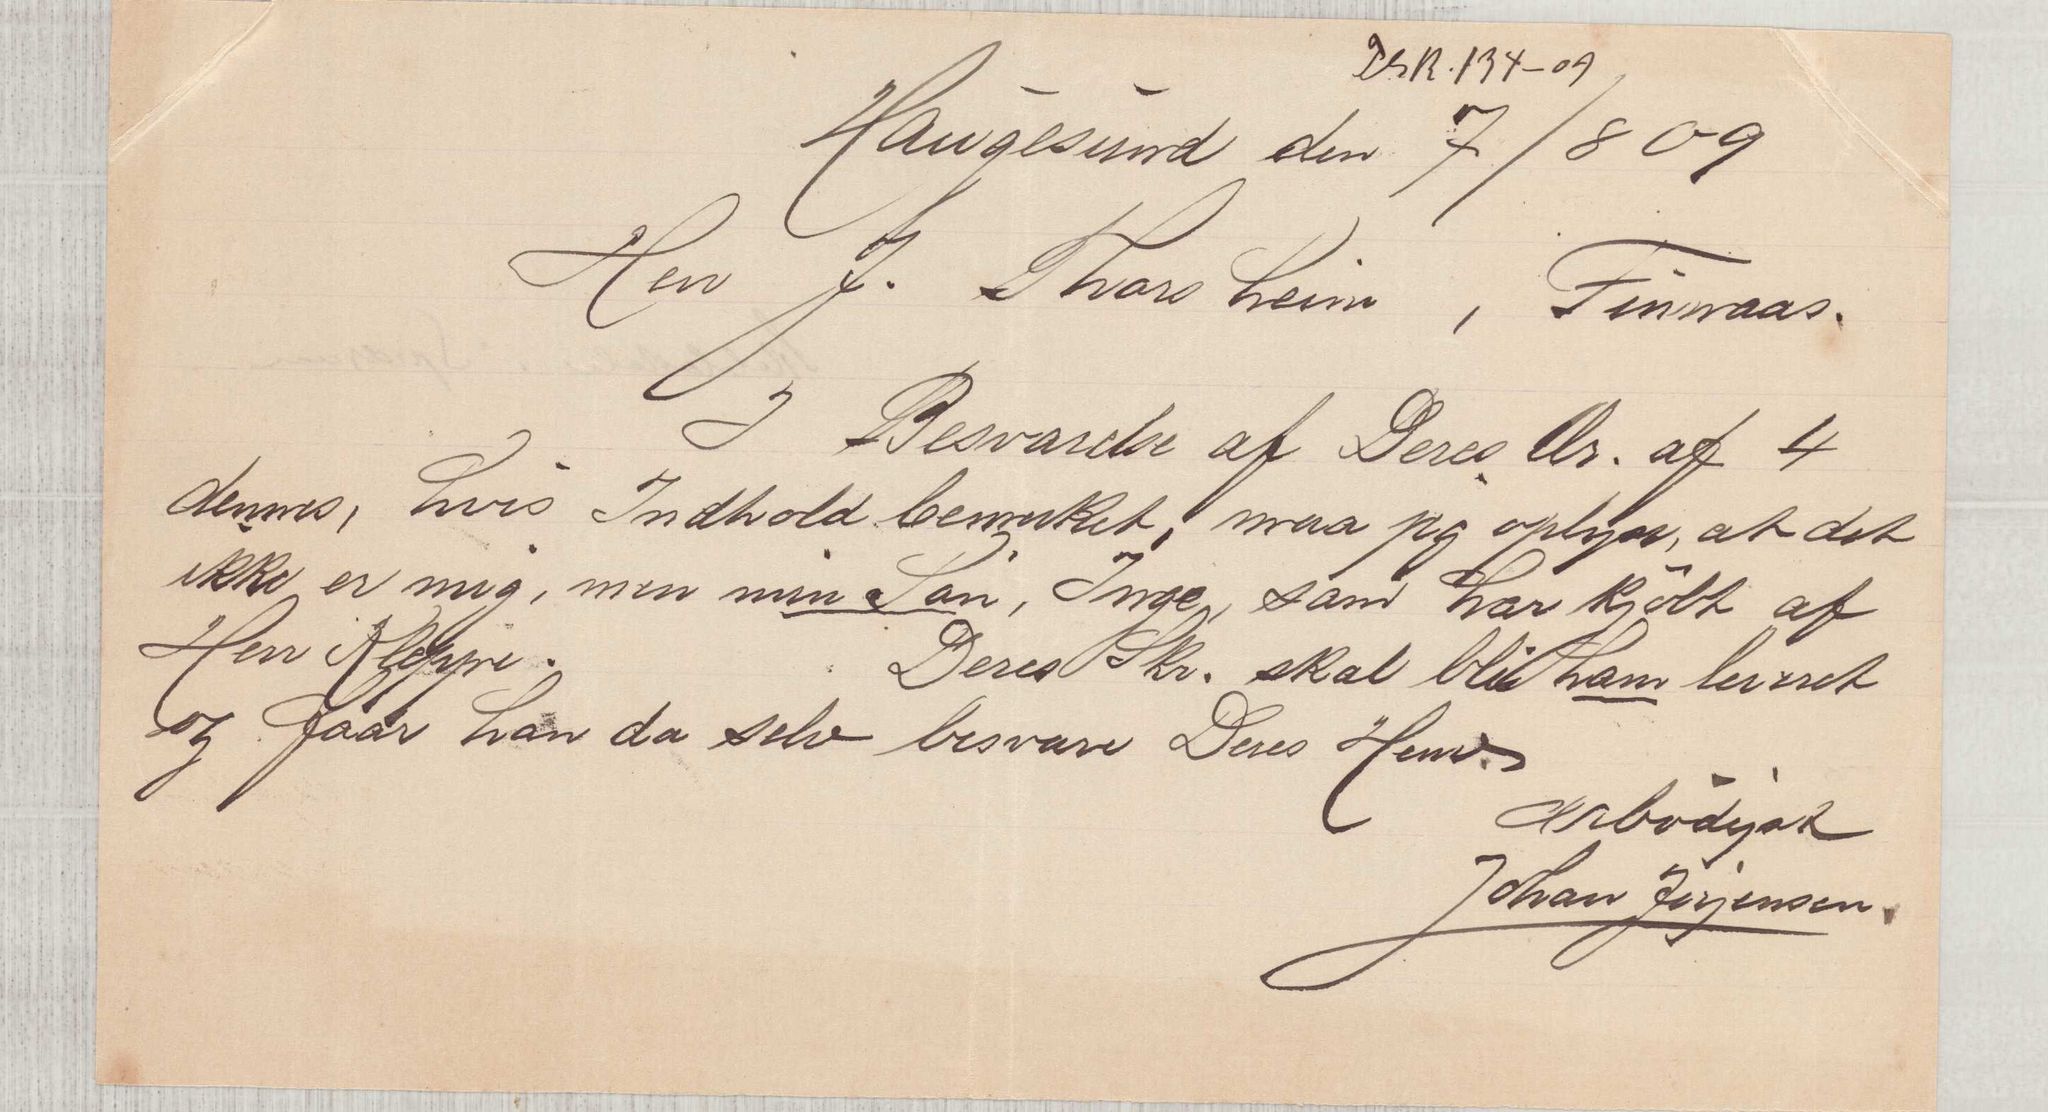 J.N. 134-09
Haugesund den 7/8 09
Herr J. Thorsheim, Finnaas.
I Besvarelse af Deres Ær. af 4
dennes, hvis Indhold bemerket, maa jeg oplyse, at det
ikke er mig, men min Søn, Inge, som har kjøbt af
Herr Kleppe. Deres Skr. skal bli ham leveret
og faar han da selv besvare Deres Henv.
Ærbødigst
Johan Jørgensen.